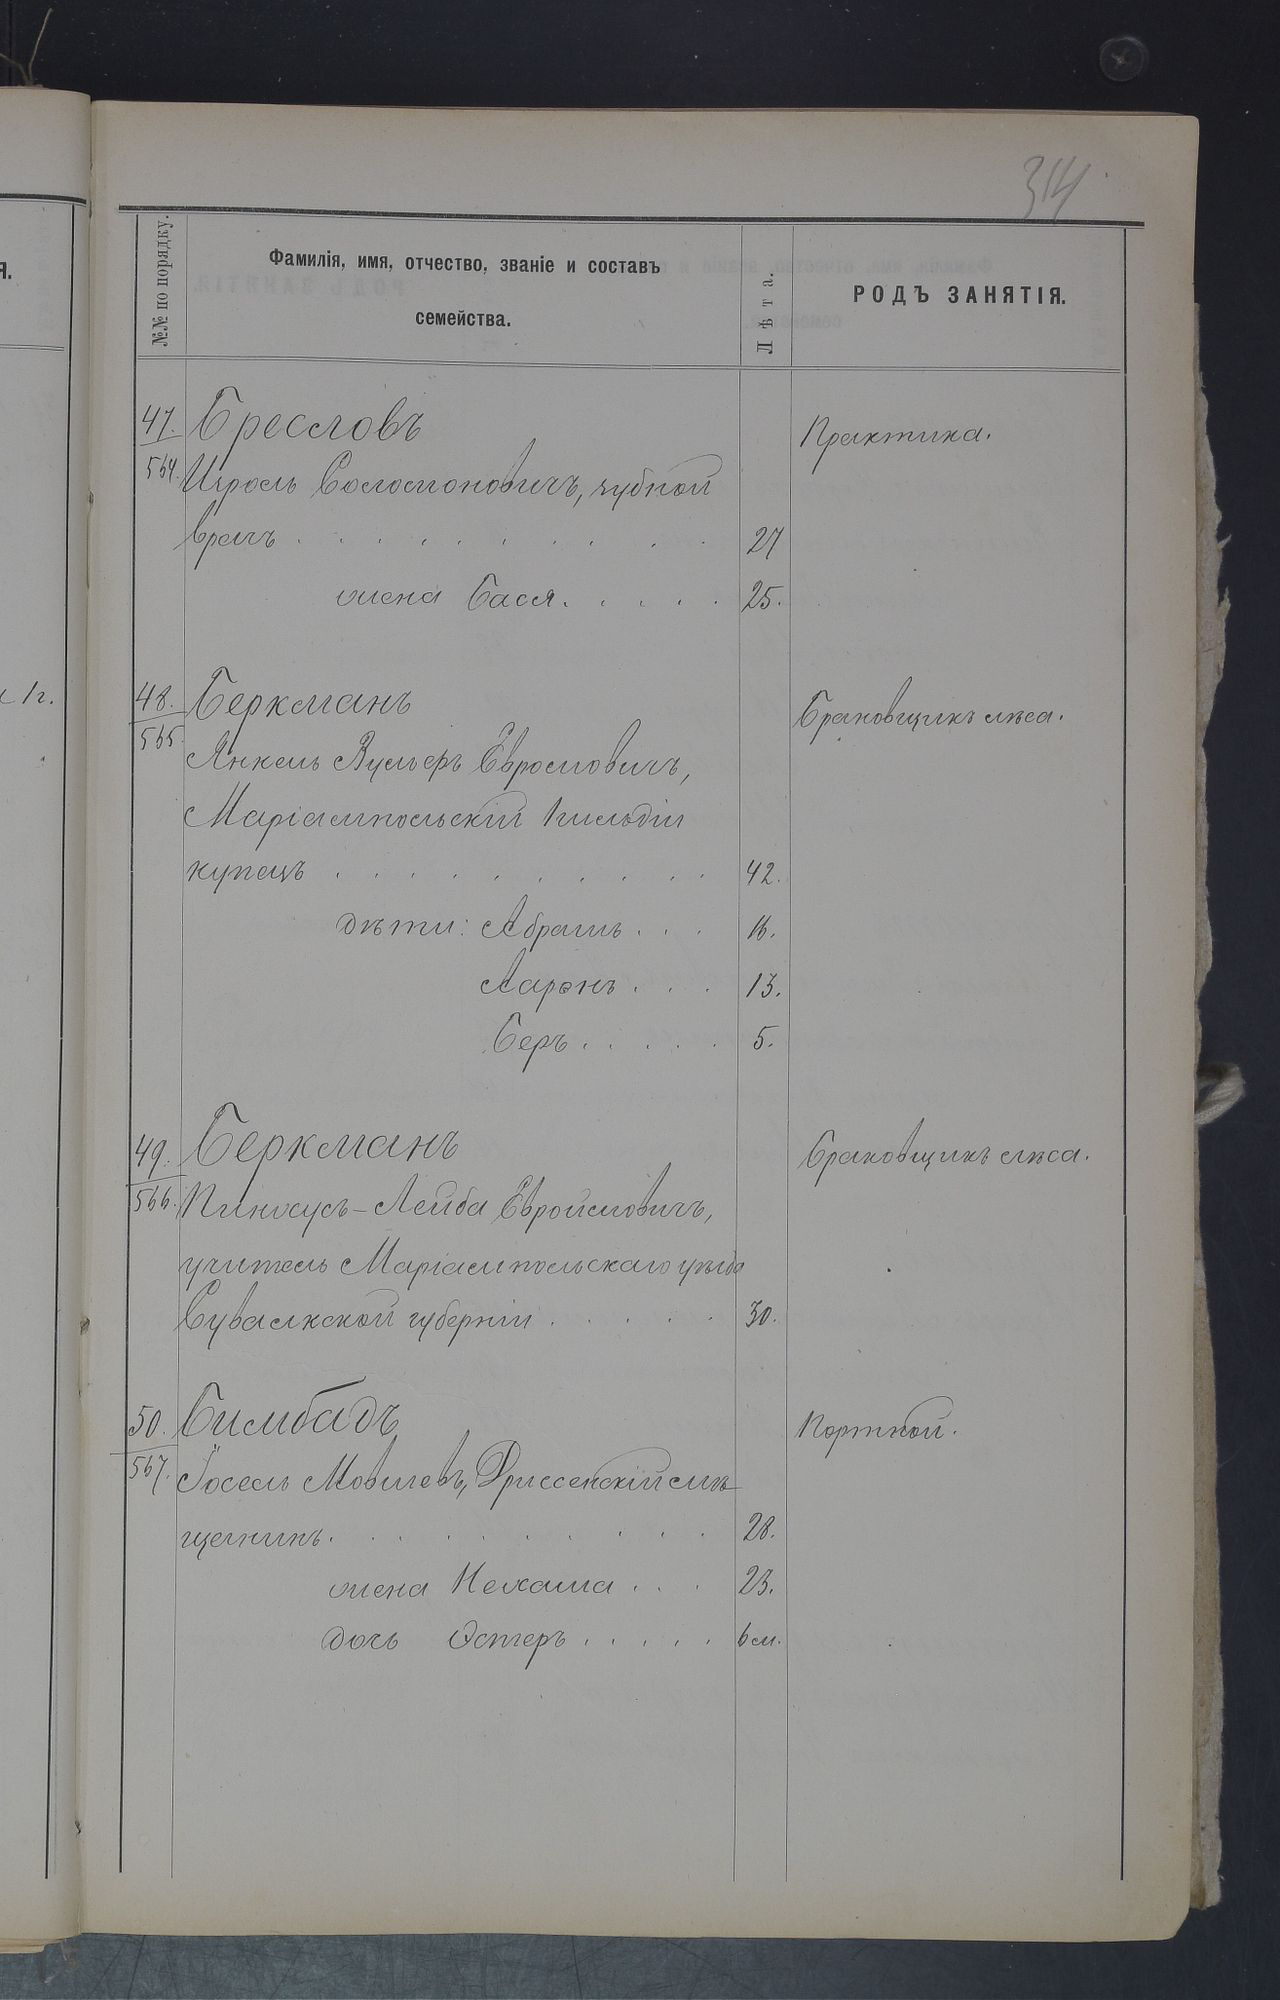 314
№№ по порядку.
Фамилія, имя, отчество, званіе и составъ
семейства.
Лѣта.
РОДЪ ЗАНЯТІЯ.
Я.
1г.
47. Бресловъ Практика.
564. Изроэль Соломоновичъ, зубной
врачъ . . . . . . . . . 27
жена Бася . . . . . 25.
48. Беркманъ Браковщикъ лѣса.
565. Янкель Вульфъ Евроимовичъ,
Маріампольскій 1 гильдіи
купецъ . . . . . . . . . . 42.
дѣти: Абрамъ . . . 16.
Ааронъ . . . 13.
Беръ . . . . . 5.
49. Беркманъ Браковщикъ лѣса.
566. Пинхусъ-Лейба Евроимовичъ,
учитель Маріампольскаго уѣзда
Сувалкской губерніи . . . . . 30.
50. Бимбадъ Портной.
567. Іосель Мовшевъ, Дриссенскій мѣ-
щанинъ . . . . . . . . . 28.
жена Нехама . . . 23.
дочь Эстеръ . . . . . 6 м.